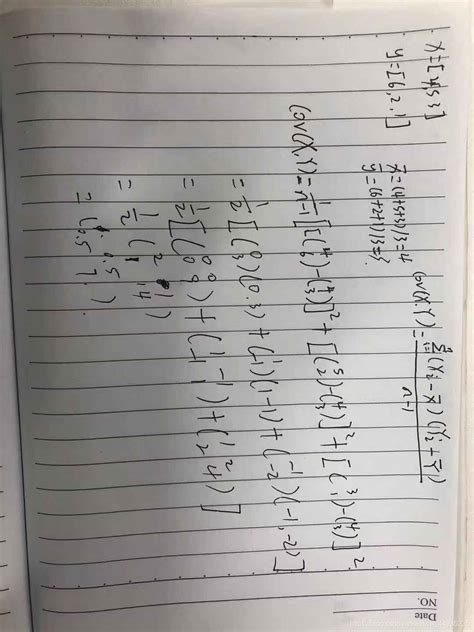 Date
NO.
x=[4,5,3]
y=[6,2,1]
x̄=(4+5+3)/3=4
ȳ=(6+2+1)/3=3
cov(X,Y)=Σ(Xi-X̄)(Yi+Ȳ)/(n-1)
cov(X,Y)=1/(n-1)[[(4 6)-(4 3)]²+[(5 2)-(4 3)]²+[(3 1)-(4 3)]²
=1/2[(0 3)(0,3)+(1 -1)(1-1)+(-1 -2)(-1,-2)]
=1/2[(0 0 0 9)+(1 -1 -1 1)+(1 2 2 4)]
=1/2(2 1 1 14)
=(1 0.5 0.5 7)